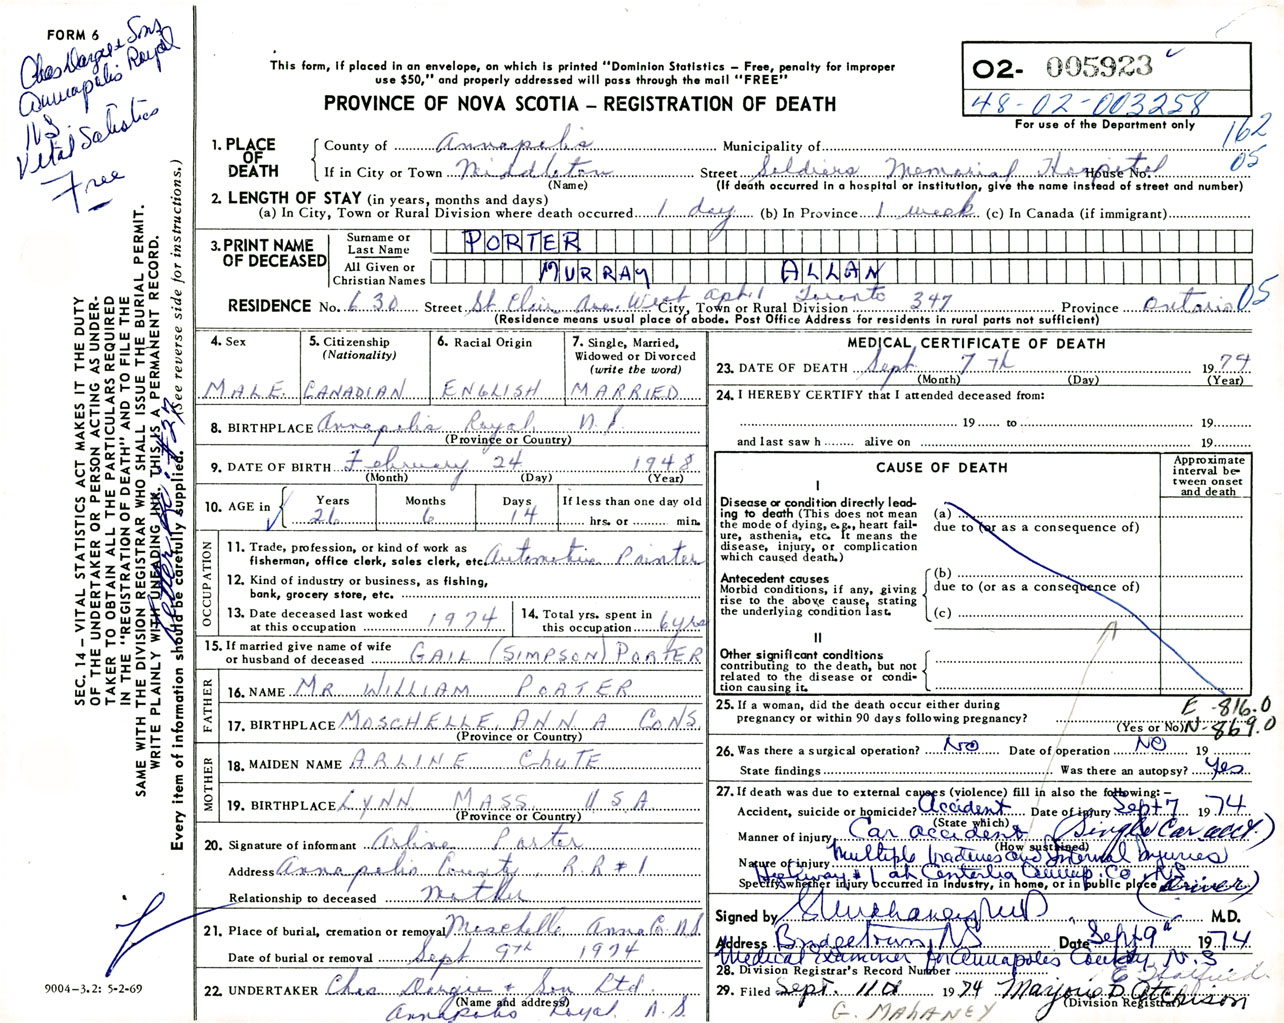 FORM 6
Chas Dargie & Sons
Annapolis Royal
N.S.
Vital Satistics
Free
This form, if placed in an envelope, on which is printed "Dominion Statistics – Free, penalty for improper
use $50," and properly addressed will pass through the mail "FREE"
PROVINCE OF NOVA SCOTIA – REGISTRATION OF DEATH
02- 005923
48-02-003258
For use of the Department only
162
05
1. PLACE OF DEATH
County of Annapolis Municipality of
If in City or Town Middleton Street Soldiers Memorial Hospital House No.
(Name) (If death occurred in a hospital or institution, give the name instead of street and number)
2. LENGTH OF STAY (in years, months and days)
(a) In City, Town or Rural Division where death occurred 1 day (b) In Province 1 week (c) In Canada (if immigrant)
3. PRINT NAME OF DECEASED
Surname or Last Name PORTER
All Given or Christian Names MURRAY ALLAN
RESIDENCE No. 630 Street St. Clair Ave. West apt. 1 Toronto 347 City, Town or Rural Division Province Ontario 05
(Residence means usual place of abode. Post Office Address for residents in rural parts not sufficient)
4. Sex
MALE
5. Citizenship
(Nationality)
CANADIAN
6. Racial Origin
ENGLISH
7. Single, Married,
Widowed or Divorced
(write the word)
MARRIED
8. BIRTHPLACE Annapolis Royal N.S.
(Province or Country)
9. DATE OF BIRTH February 24 1948
(Month) (Day) (Year)
10. AGE in Years 26 Months 6 Days 14 If less than one day old
hrs. or min.
OCCUPATION
11. Trade, profession, or kind of work as
fisherman, office clerk, sales clerk, etc. Automotive Painter
12. Kind of industry or business, as fishing,
bank, grocery store, etc.
13. Date deceased last worked
at this occupation 1974
14. Total yrs. spent in
this occupation 6 yrs
15. If married give name of wife
or husband of deceased GAIL (SIMPSON) PORTER
FATHER
16. NAME MR WILLIAM PORTER
17. BIRTHPLACE MOSCHELLE, ANNA CO N.S.
(Province or Country)
MOTHER
18. MAIDEN NAME ARLINE CHUTE
19. BIRTHPLACE LYNN MASS. USA
(Province or Country)
20. Signature of informant Arline Porter
Address Annapolis County RR#1
Relationship to deceased Mother
21. Place of burial, cremation or removal Moschelle Anna C. N.S
Date of burial or removal Sept 9th 1974
22. UNDERTAKER Chas Dargie & Son Ltd.
(Name and address)
Annapolis Royal N.S
MEDICAL CERTIFICATE OF DEATH
23. DATE OF DEATH Sept 7th 1974
(Month) (Day) (Year)
24. I HEREBY CERTIFY that I attended deceased from:
19 to 19
and last saw h alive on 19
CAUSE OF DEATH
Approximate interval between onset and death
I
Disease or condition directly leading to death (This does not mean the mode of dying, e.g., heart failure, asthenia, etc. It means the disease, injury, or complication which caused death.)
(a)
due to (or as a consequence of)
Antecedent causes
Morbid conditions, if any, giving rise to the above cause, stating the underlying condition last.
(b)
due to (or as a consequence of)
(c)
II
Other significant conditions
contributing to the death, but not related to the disease or condition causing it.
25. If a woman, did the death occur either during
pregnancy or within 90 days following pregnancy?
(Yes or No)
E-816.0
N-869.0
26. Was there a surgical operation? NO Date of operation NO 19
State findings Was there an autopsy? Yes
27. If death was due to external causes (violence) fill in also the following: –
Accident, suicide or homicide? Accident Date of injury Sept 7 1974
(State which)
Manner of injury Car accident (Single Car acct.)
(How sustained)
Nature of injury Multiple fractures and Internal Injuries
Highway #1 at Centrelia Annap. Co. N.S.
Specify whether injury occurred in industry, in home, or in public place (driver)
Signed by M.D.
Address Bridgetown, NS Date Sept 9th 1974
Medical Examiner for Annapolis County, N.S
28. Division Registrar's Record Number
29. Filed Sept. 11th 1974 Marjorie D. Atchison
(Division Registrar)
G. MAHANEY
SEC. 14 – VITAL STATISTICS ACT MAKES IT THE DUTY
OF THE UNDERTAKER OR PERSON ACTING AS UNDER-
TAKER TO OBTAIN ALL THE PARTICULARS REQUIRED
IN THE "REGISTRATION OF DEATH" AND TO FILE THE
SAME WITH THE DIVISION REGISTRAR WHO SHALL ISSUE THE BURIAL PERMIT.
WRITE PLAINLY WITH UNFADING INK. THIS IS A PERMANENT RECORD.
Every item of information should be carefully supplied. (See reverse side for instructions.)
9004-3.2: 5-2-69